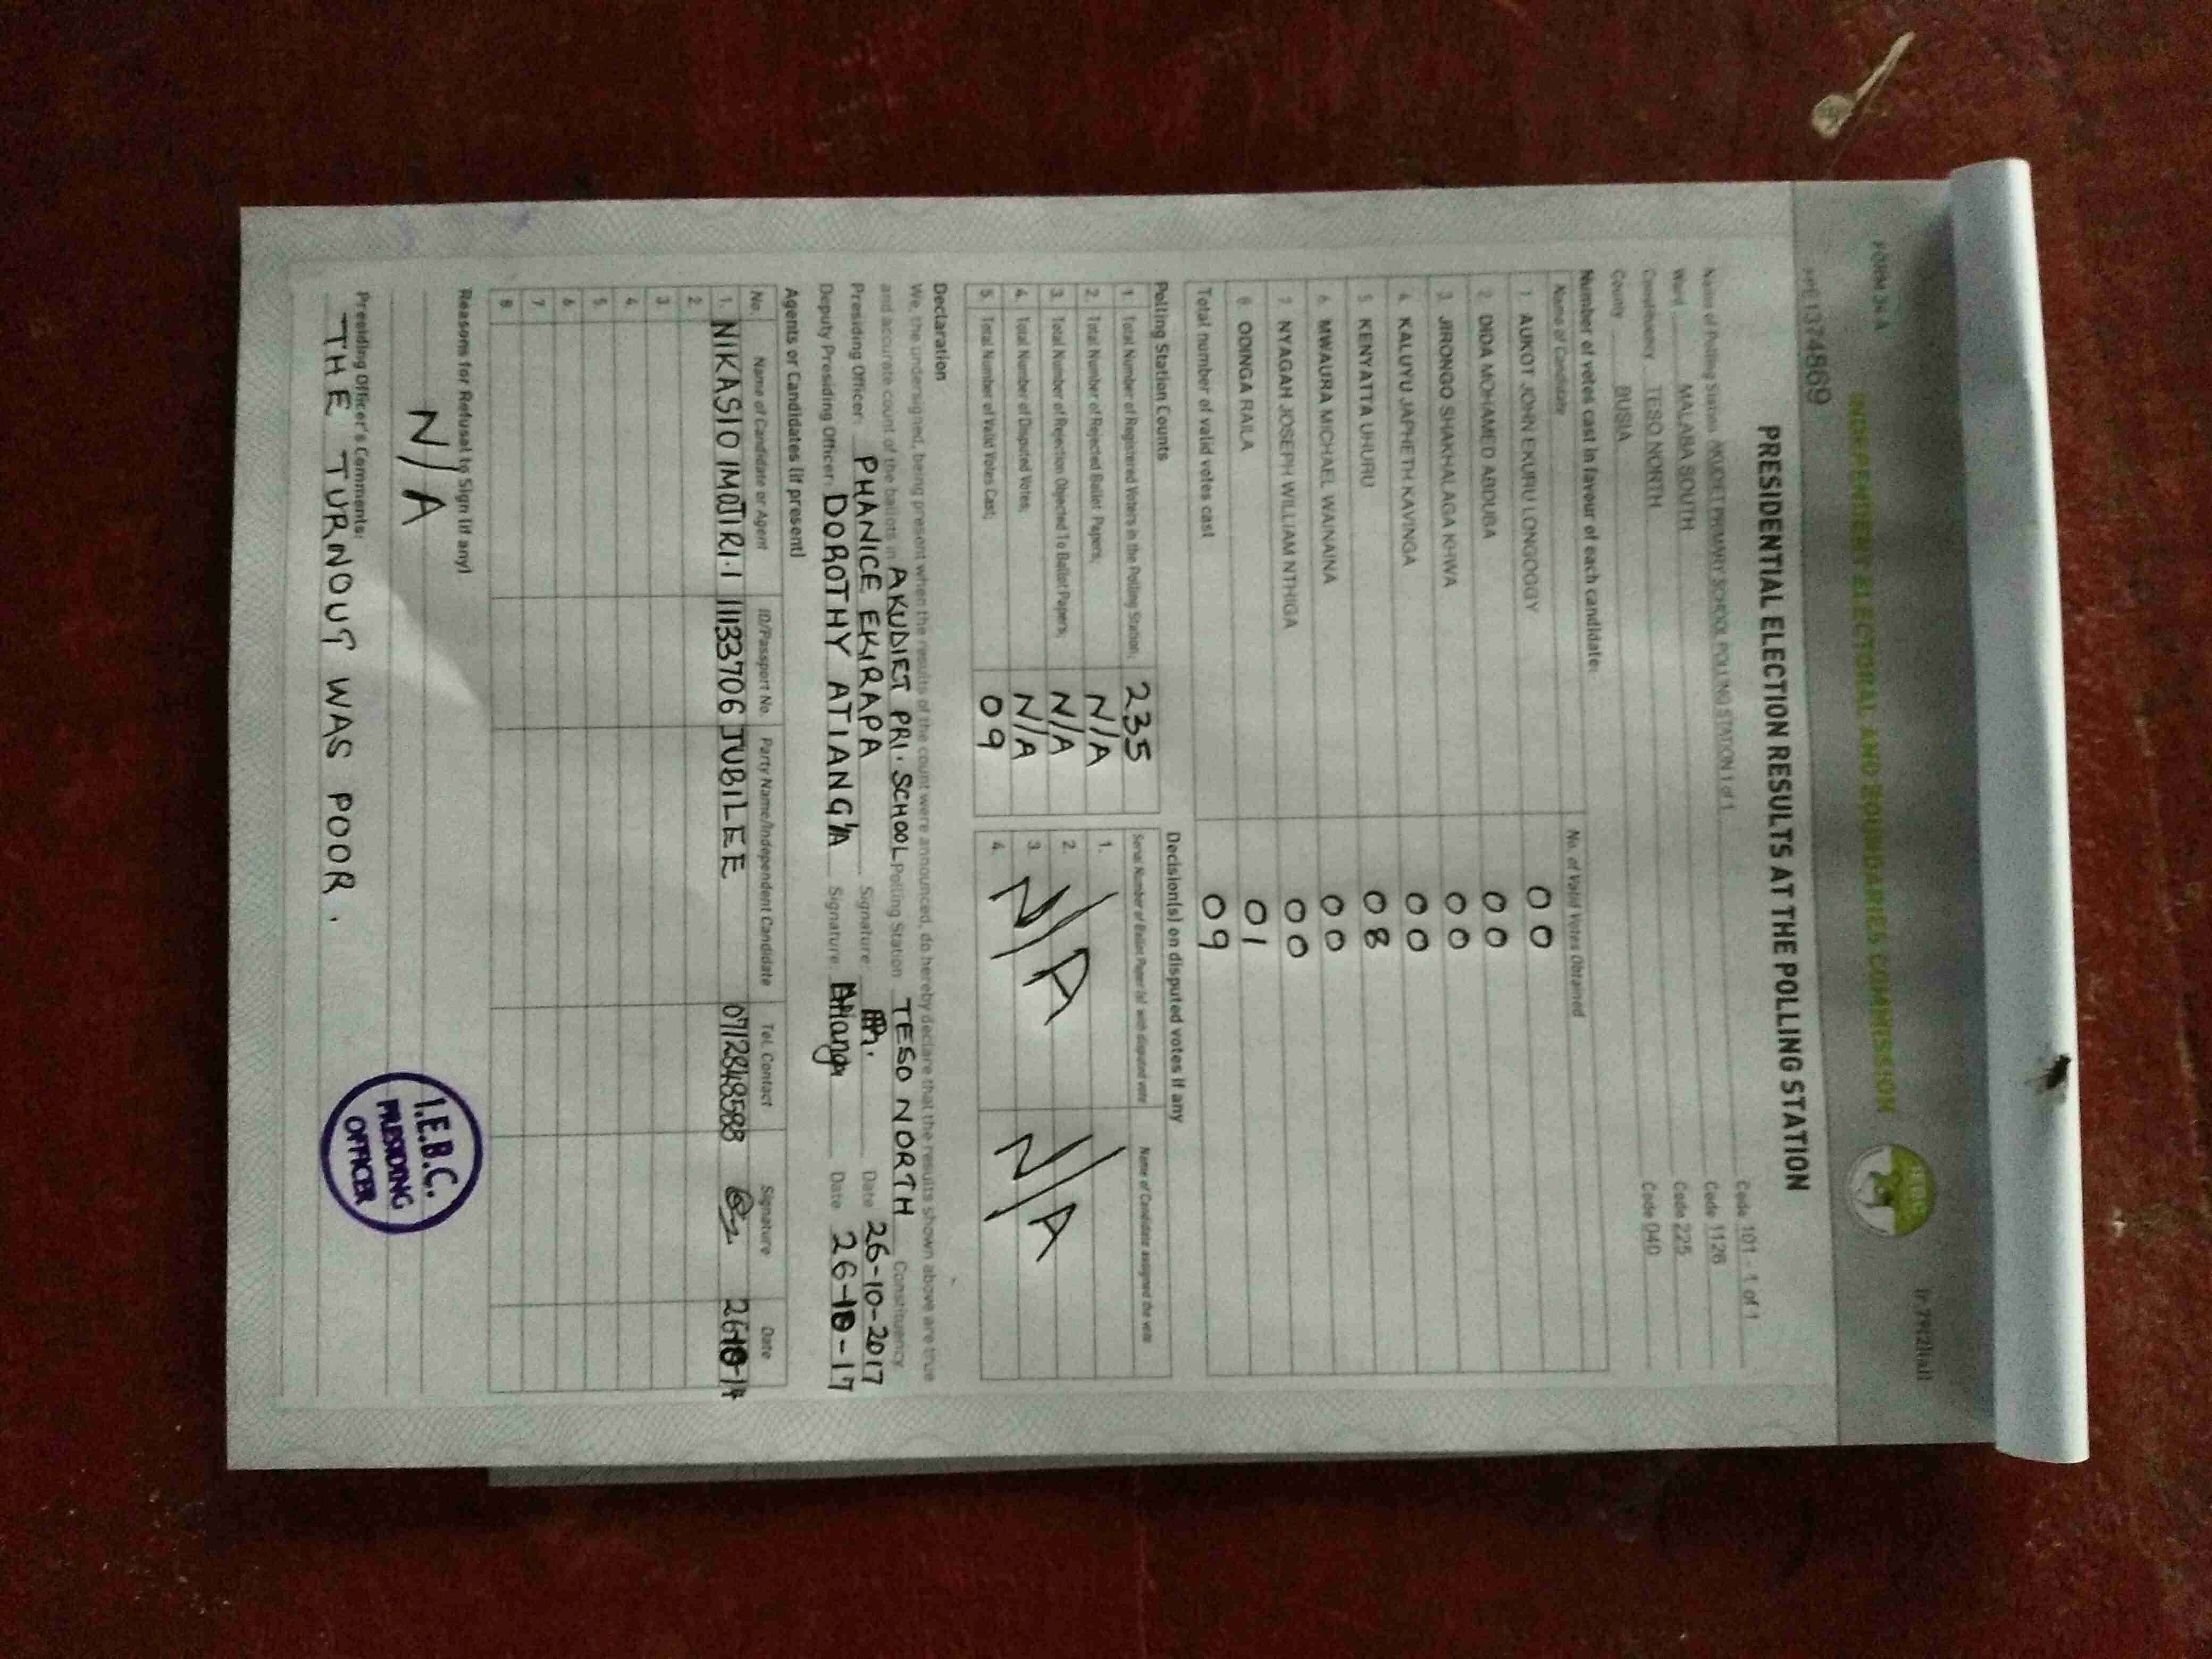 FORM 34 A
INDEPENDENT ELECTORAL AND BOUNDARIES COMMISSION
IEBC
1374869
PRESIDENTIAL ELECTION RESULTS AT THE POLLING STATION
Name of Polling Station AKUDIET PRIMARY SCHOOL POLLING STATION 1 of 1 Code 101 - 1 of 1
Ward MALABA SOUTH Code 1126
Constituency TESO NORTH Code 225
County BUSIA Code 040
Number of votes cast in favour of each candidate:
Name of Candidate No. of Valid Votes Obtained
1 AUKOT JOHN EKURU LONGOGGY 00
2 DIDA MOHAMED ABDUBA 00
3. JIRONGO SHAKHALAGA KHWA 00
4 KALUYU JAPHETH KAVINGA 00
5 KENYATTA UHURU 08
6 MWAURA MICHAEL WAINAINA 00
7 NYAGAH JOSEPH WILLIAM NTHIGA 00
8 ODINGA RAILA 01
Total number of valid votes cast 09
Polling Station Counts
1 Total Number of Registered Voters in the Polling Station; 235
2. Total Number of Rejected Ballot Papers; N/A
3. Total Number of Rejection Objected To Ballot Papers; N/A
4. Total Number of Disputed Votes; N/A
5. Total Number of Valid Votes Cast; 09
Decision(s) on disputed votes if any
Serial Number of Ballot Paper (s) with disputed vote Name of Candidate assigned the vote
1.
2.
3.
4.
N/A N/A
Declaration
We, the undersigned, being present when the results of the count were announced, do hereby declare that the results shown above are true
and accurate count of the ballots in AKUDIET PRI. SCHOOL Polling Station TESO NORTH Constituency
Presiding Officer: PHANICE EKIRAPA Signature Date 26-10-2017
Deputy Presiding Officer: DOROTHY ATIANG'A Signature: Atianga Date 26-10-17
Agents or Candidates (if present)
No. Name of Candidate or Agent ID/Passport No. Party Name/Independent Candidate Tel. Contact Signature Date
1. NIKASIO IMOJIRI.I 11133706 JUBILEE 0712848588
2.
3.
4.
5.
6
7
8
Reasons for Refusal to Sign (if any)
N/A
Presiding Officer's Comments:
THE TURNOUT WAS POOR.
I.E.B.C.
PRESIDING
OFFICER